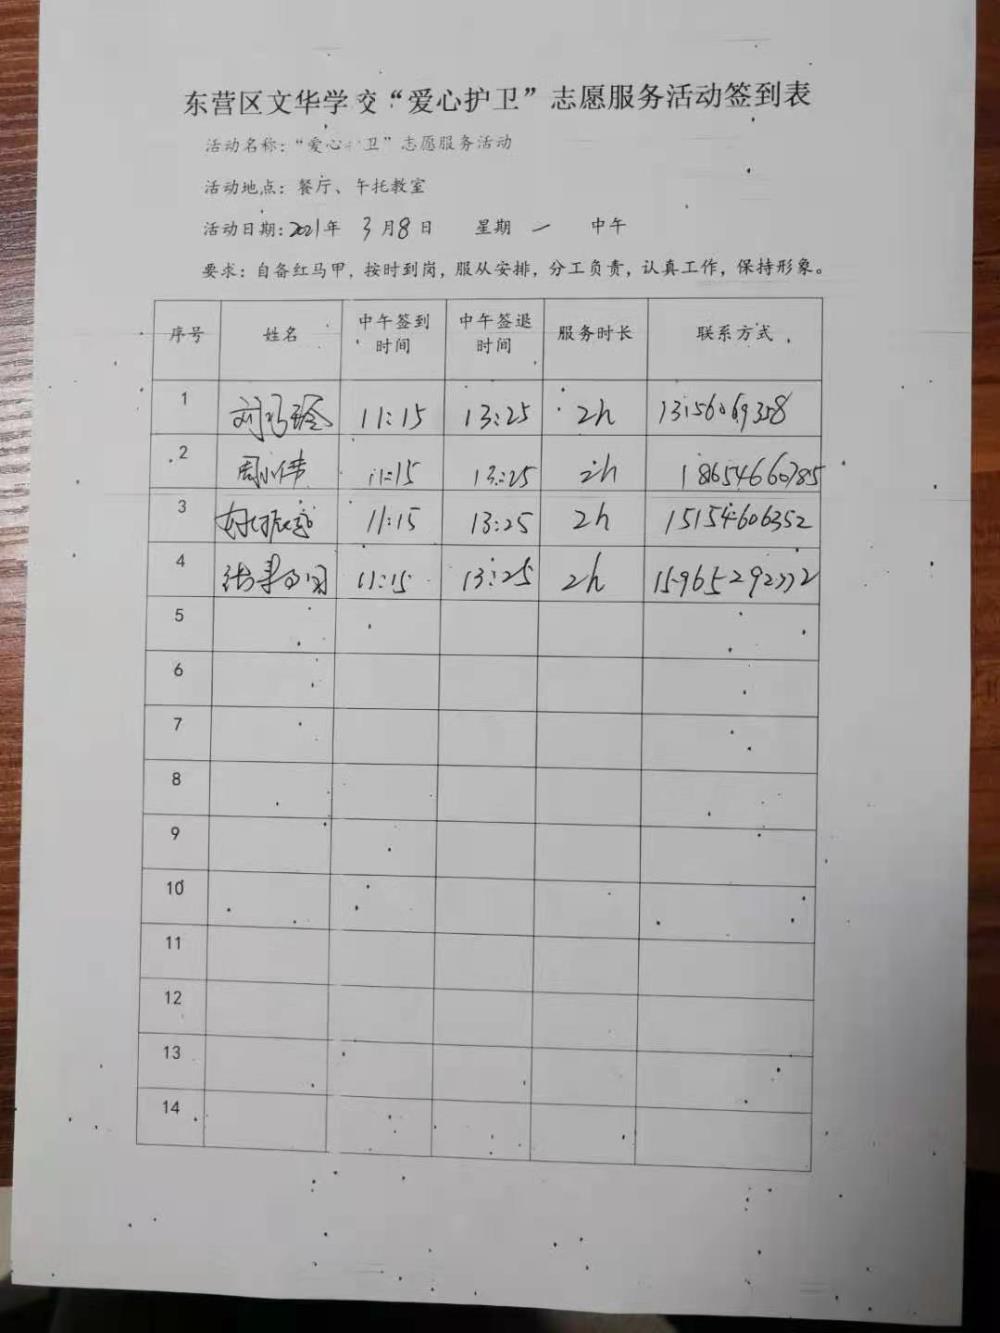 东营区文华学校“爱心护卫”志愿服务活动签到表
活动名称：“爱心护卫”志愿服务活动
活动地点：餐厅、午托教室
活动日期：2021年 3月8日 星期一 中午
要求：自备红马甲，按时到岗，服从安排，分工负责，认真工作，保持形象。
序号 姓名 中午签到时间 中午签退时间 服务时长 联系方式
1 11:15 13:25 2h 13156069358
2 周小伟 11:15 13:25 2h 18654660785
3 11:15 13:25 2h 15154606352
4 11:15 13:25 2h 15965292772
5
6
7
8
9
10
11
12
13
14